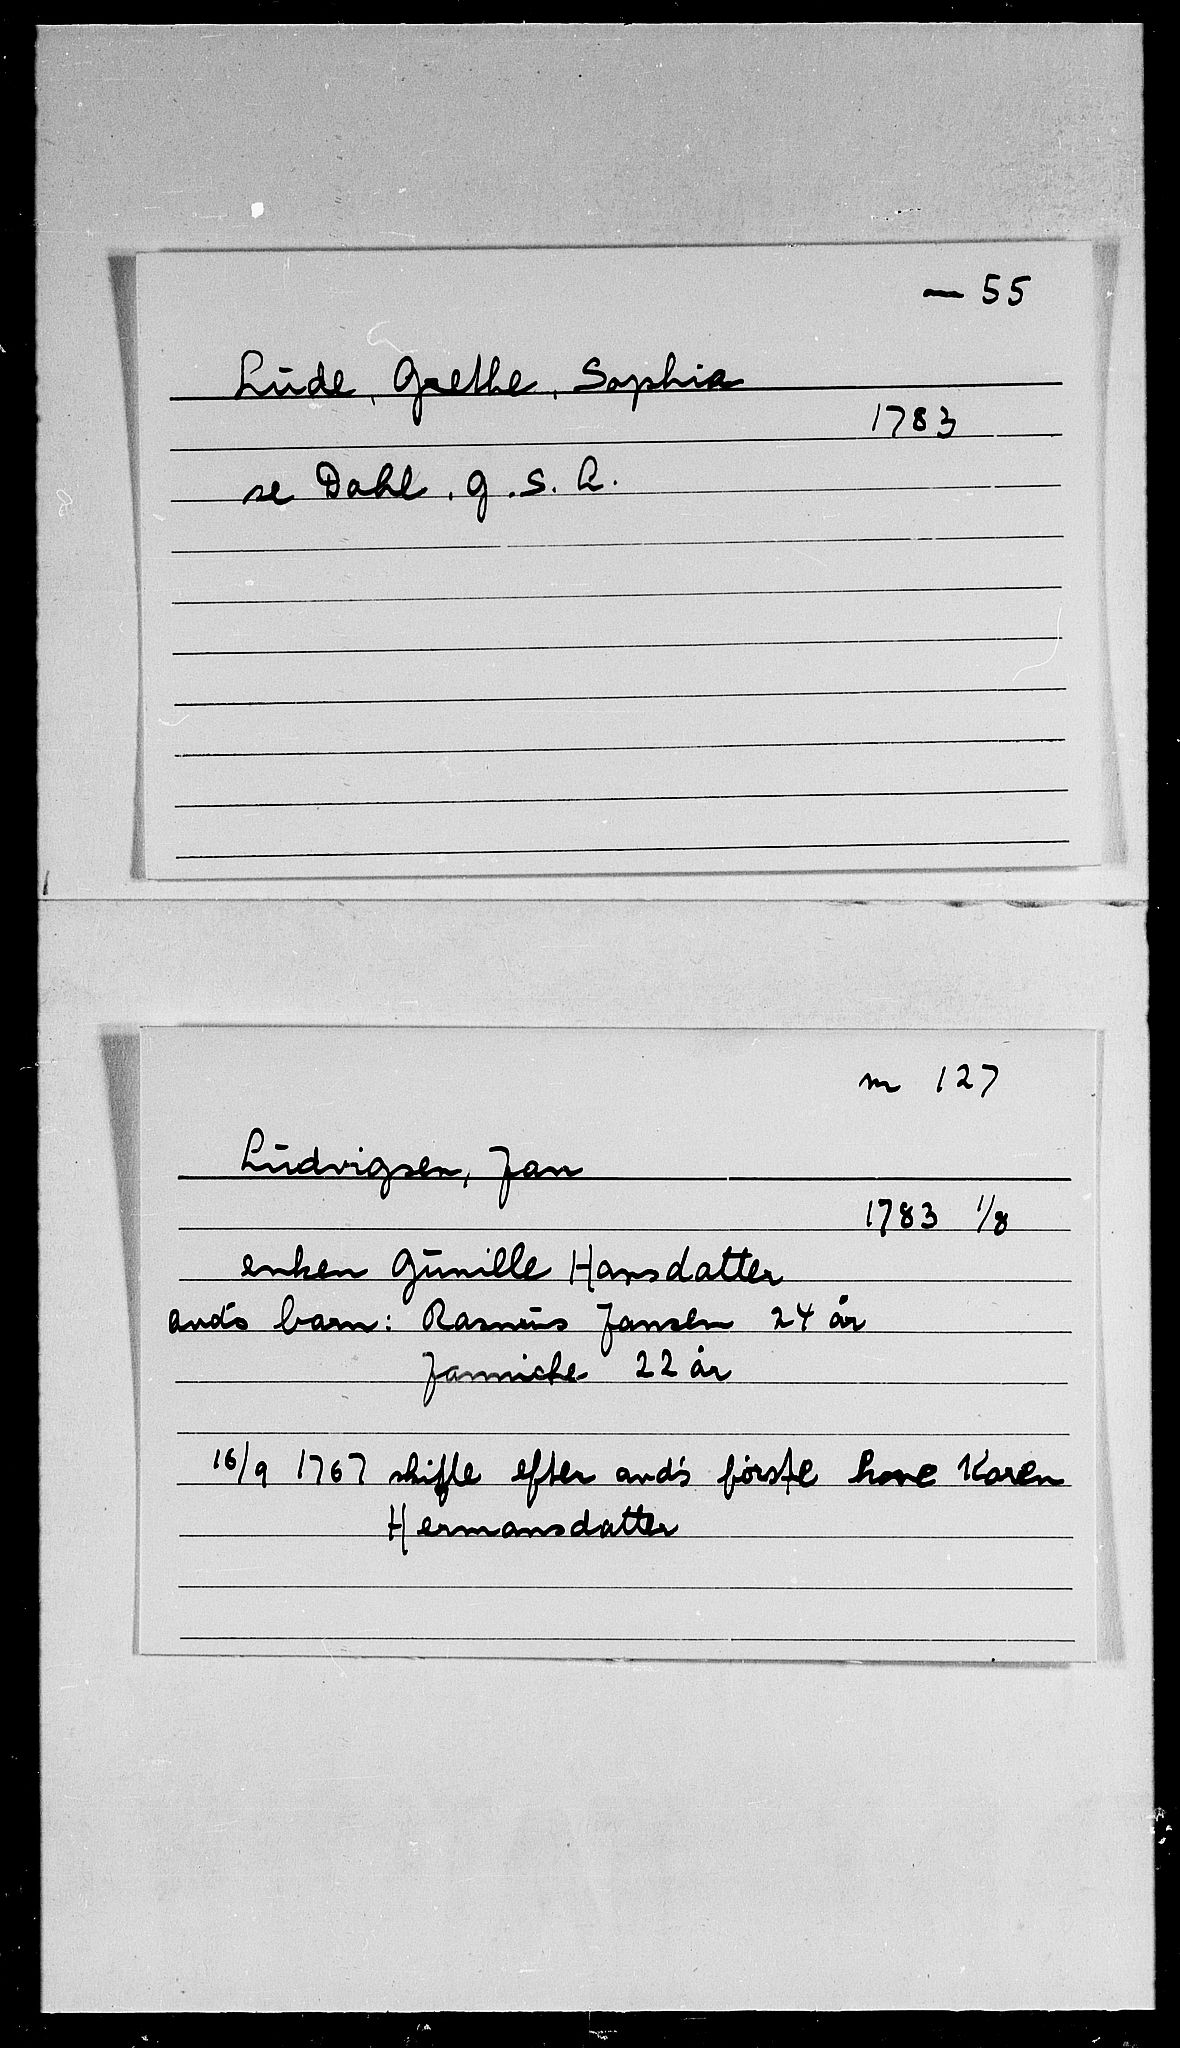 — 55
Lude, Grethe, Sophia
1783
se Dahl. G. S. L.
m 127
Ludvigsen, Jan
1783 1/8
enken Gunille Hansdatter
avd's barn: Rasmus Jansen 24 år
Jannicke 22 år
16/9 1767 skifte efter avd's første kone Karen
Hermansdatter